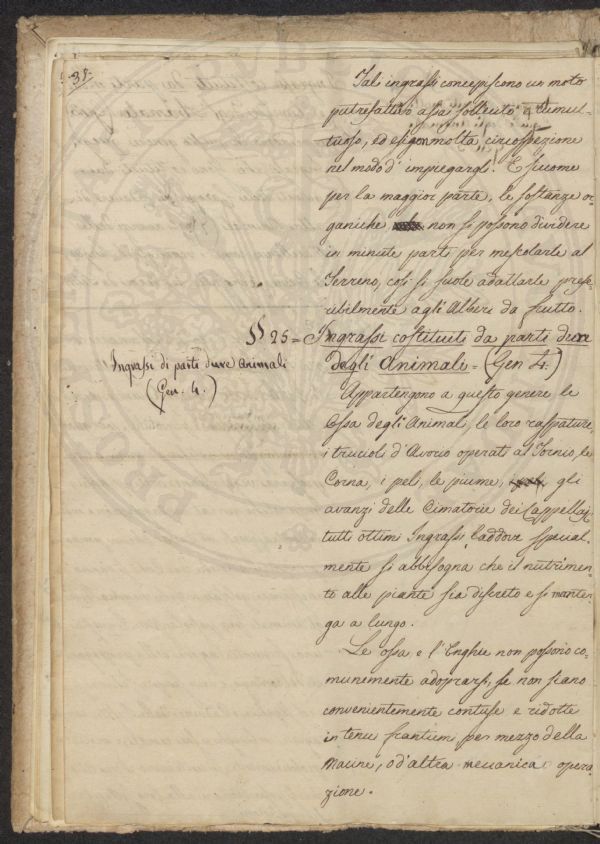 39.
Tali ingrassi concepiscono un moto
putrefattivo assai sollecito e tumul-
tuoso, ed esigon molta circospezione
nel modo d'impiegargli. E siccome
per la maggior parte, le sostanze or-
ganiche non si possono dividere
in minute parti per mescolarle al
Terreno, così si suole adattarle prefe-
ribilmente agli Alberi da frutto.
§§ 25 = Ingrassi costituiti da parti dure
degli Animali = (Gen 4.)
Ingrassi di parti dure Animali
(Gen. 4.)
Appartengono a questo genere le
Ossa degli Animali, le loro raspature,
i trucioli d'Avorio operati al Tornio, le
Corna, i peli, le piume, gli
avanzi delle Cimatorie dei Cappellaj,
tutti ottimi Ingrassi laddove special-
mente si abbisogna che il nutrimen-
to alle piante sia discreto e si manten-
ga a lungo.
Le ossa e l'Unghie non possono co-
munemente adoprarsi, se non siano
convenientemente contuse e ridotte
in tenui frantumi per mezzo della
Macine, o d'altra meccanica opera-
zione.